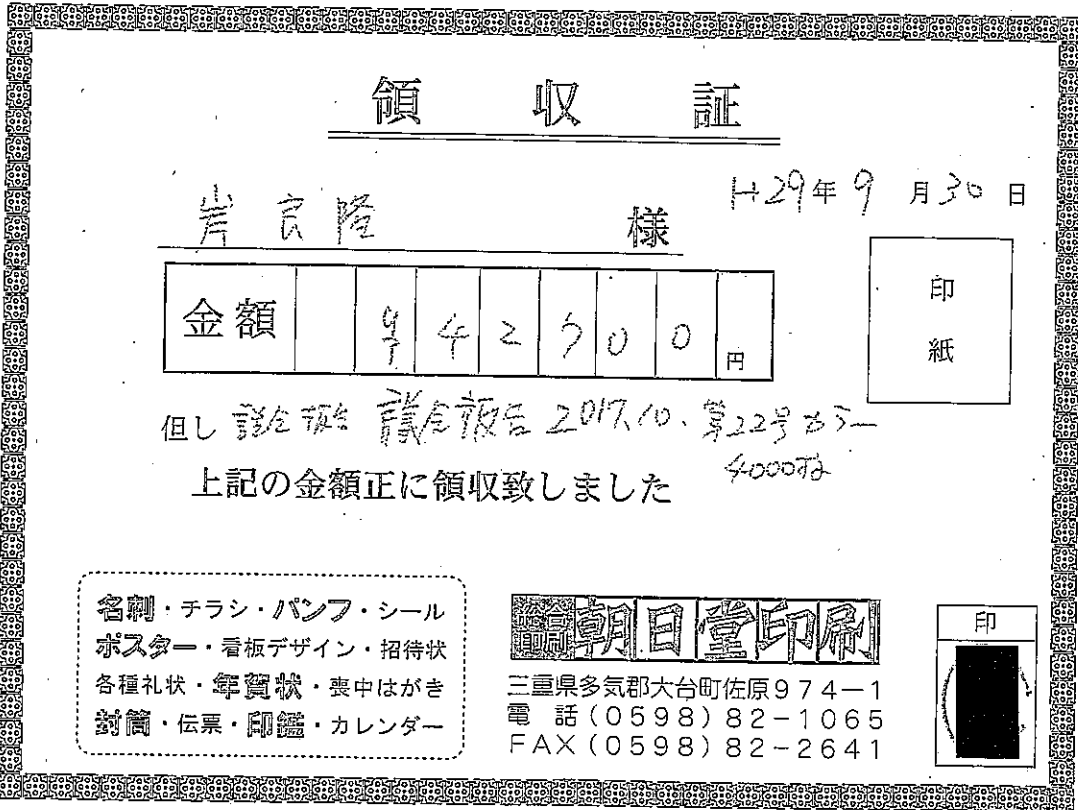 領収証
H29年9月30日
岸良隆 様
金額 ¥42500円
印紙
但し 議会報告 議会報告 2017.10. 第22号カラー
4000部
上記の金額正に領収致しました
名刺・チラシ・パンフ・シール
ポスター・看板デザイン・招待状
各種礼状・年賀状・喪中はがき
封筒・伝票・印鑑・カレンダー
総合印刷 朝日堂印刷
三重県多気郡大台町佐原974-1
電話(0598)82-1065
FAX(0598)82-2641
印